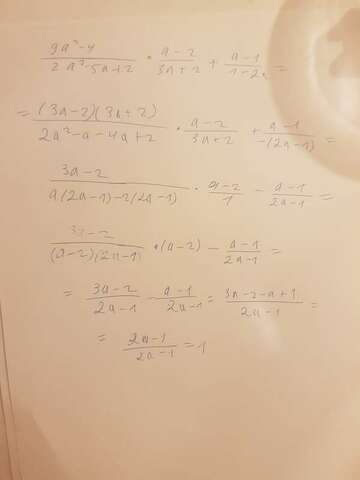 (9a²-4)/(2a²-5a+2) · (a-2)/(3a+2) + (a-1)/(1-2a) =
= ((3a-2)(3a+2))/(2a²-a-4a+2) · (a-2)/(3a+2) + (a-1)/(-(2a-1)) =
(3a-2)/(a(2a-1)-2(2a-1)) · (a-2)/1 - (a-1)/(2a-1) =
(3a-2)/((a-2)(2a-1)) · (a-2) - (a-1)/(2a-1) =
= (3a-2)/(2a-1) - (a-1)/(2a-1) = (3a-2-a+1)/(2a-1) =
= (2a-1)/(2a-1) = 1